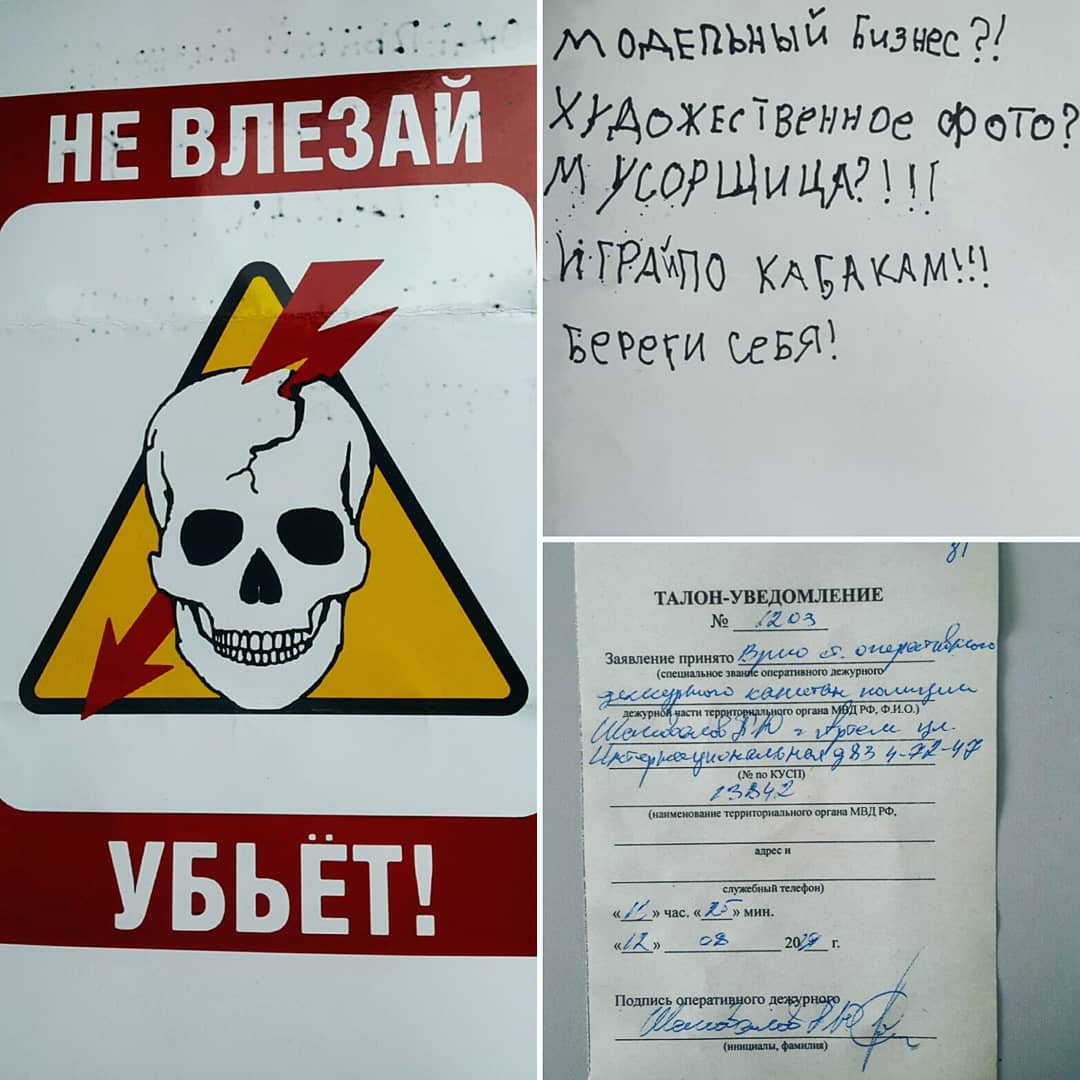 НЕ ВЛЕЗАЙ
УБЬЁТ!
МОДЕЛЬНЫЙ Бизнес?!
ХУДОЖЕСТВЕННОЕ ФОТО?
МУСОРЩИЦА?!!!
ИГРАЙ ПО КАБАКАМ!!!
БЕРЕГИ СЕБЯ!
81
ТАЛОН-УВЕДОМЛЕНИЕ
№ 1203
Заявление принято Врио ст. оперативного
(специальное звание оперативного дежурного
дежурного капитан полиции
дежурной части территориального органа МВД РФ, Ф.И.О.)
г Артем ул.
Интернациональная д 83 4-72-47
(№ по КУСП)
13842
(наименование территориального органа МВД РФ,
адрес и
служебный телефон)
«11» час. «25» мин.
«12» 08 2019 г.
Подпись оперативного дежурного
(инициалы, фамилия)